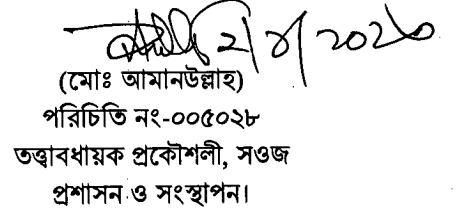 ২/৪/২০২০
(মোঃ আমানউল্লাহ)
পরিচিতি নং-০০৫০২৮
তত্ত্বাবধায়ক প্রকৌশলী, সওজ
প্রশাসন ও সংস্থাপন।